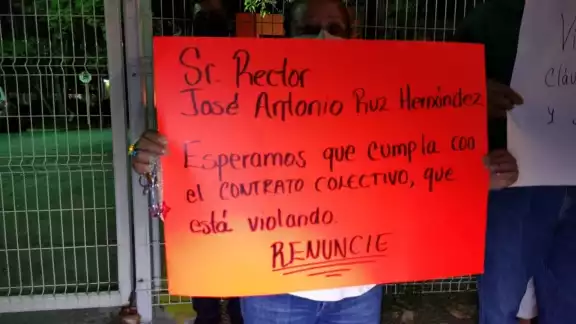 Sr. Rector
José Antonio Ruz Hernández
Esperamos que cumpla con
el CONTRATO COLECTIVO, que
está violando.
RENUNCIE
Cláu
y